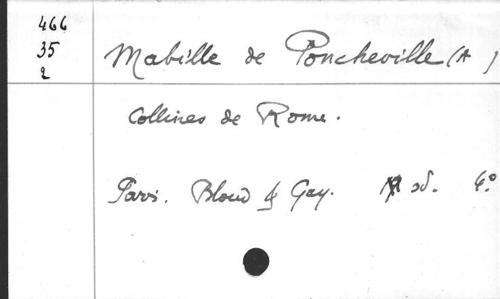 466
35
2
Mabille de Poncheville (A )
Collines de Rome.
Paris. Bloud & Gay. sd. 6°